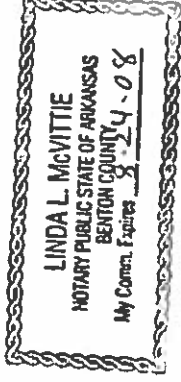 LINDA L. MCVITTIE
NOTARY PUBLIC STATE OF ARKANSAS
BENTON COUNTY
My Comm. Expires 8-24-08